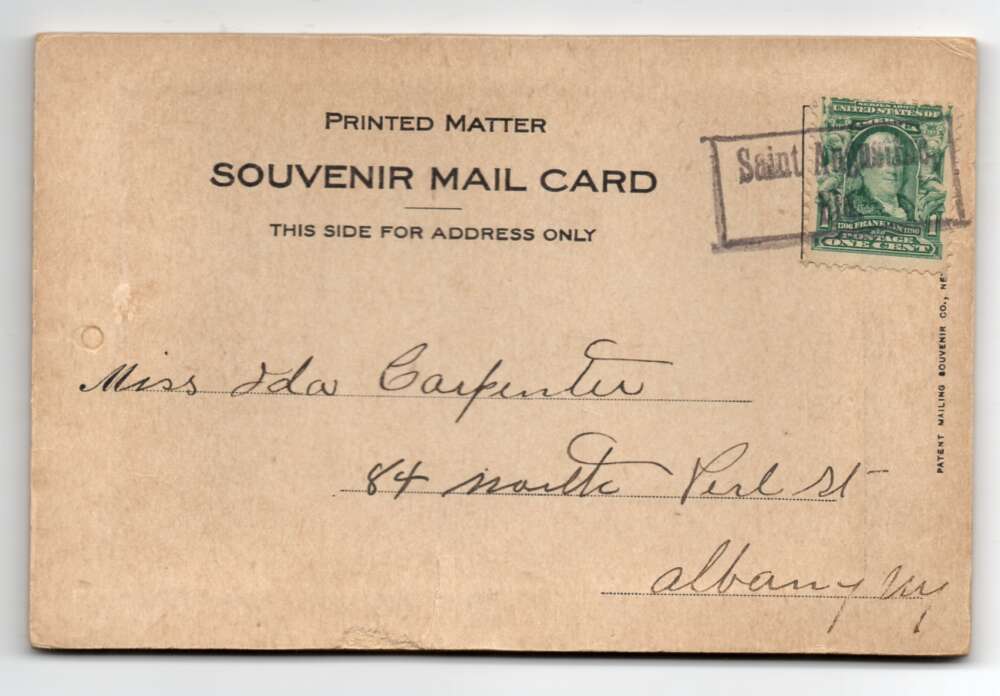 PRINTED MATTER
SOUVENIR MAIL CARD
THIS SIDE FOR ADDRESS ONLY
UNITED STATES OF
AMERICA
FRANKLIN
POSTAGE
ONE CENT
Saint Augustine,
PATENT MAILING SOUVENIR CO.,
Miss Ida Carpenter
84 North Perl St
Albany NY